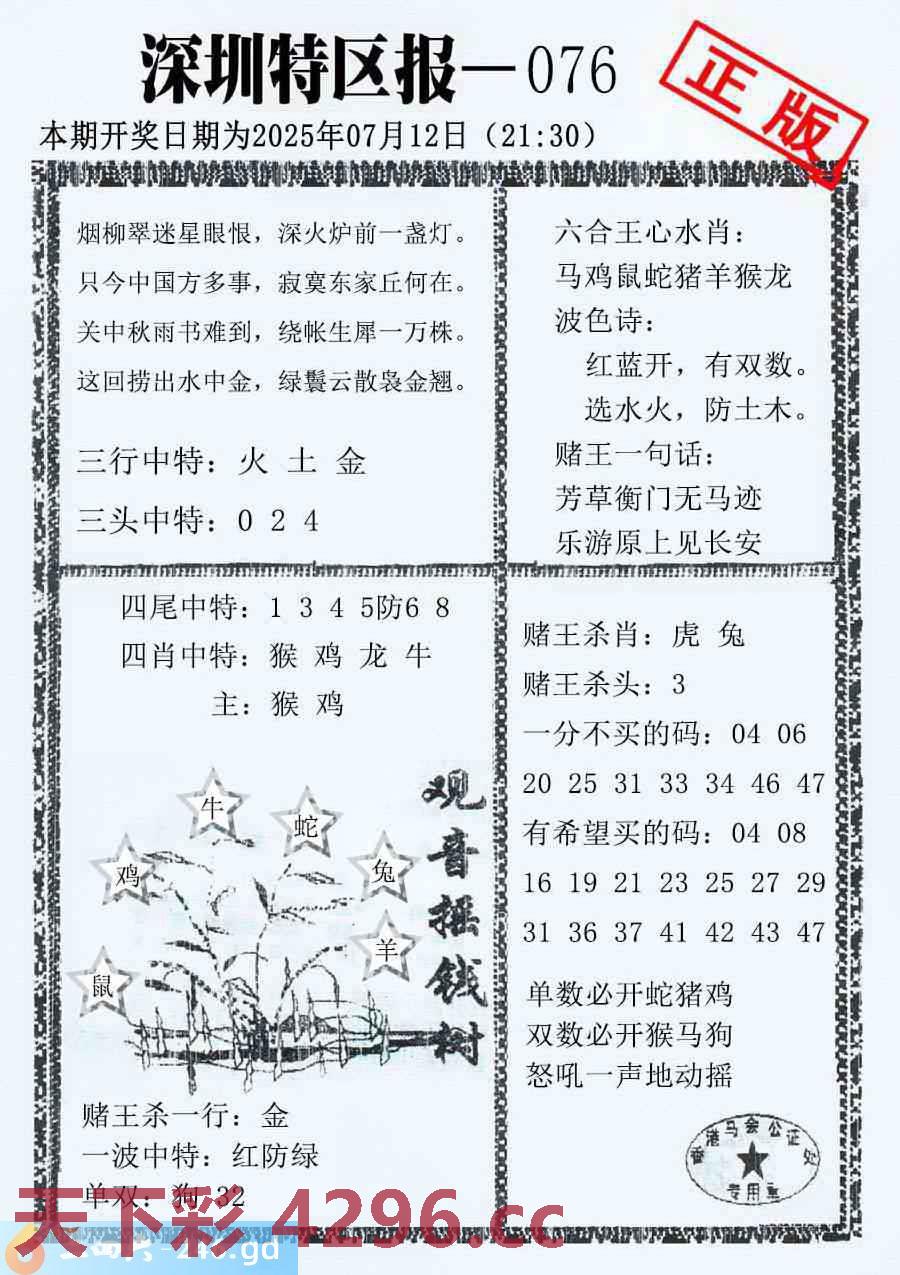 深圳特区报—076
正版
本期开奖日期为2025年07月12日（21:30）
烟柳翠迷星眼恨，深火炉前一盏灯。
只今中国方多事，寂寞东家丘何在。
关中秋雨书难到，绕帐生犀一万株。
这回捞出水中金，绿鬟云散袅金翘。
三行中特：火 土 金
三头中特：0 2 4
六合王心水肖：
马鸡鼠蛇猪羊猴龙
波色诗：
红蓝开，有双数。
选水火，防土木。
赌王一句话：
芳草衡门无马迹
乐游原上见长安
四尾中特：1 3 4 5防6 8
四肖中特：猴 鸡 龙 牛
主：猴 鸡
牛
蛇
鸡
兔
羊
鼠
观音摇钱树
赌王杀一行：金
一波中特：红防绿
单双：狗 32
赌王杀肖：虎 兔
赌王杀头：3
一分不买的码：04 06
20 25 31 33 34 46 47
有希望买的码：04 08
16 19 21 23 25 27 29
31 36 37 41 42 43 47
单数必开蛇猪鸡
双数必开猴马狗
怒吼一声地动摇
香港马会公证处
专用章
天下彩 4296.cc
-246.gd